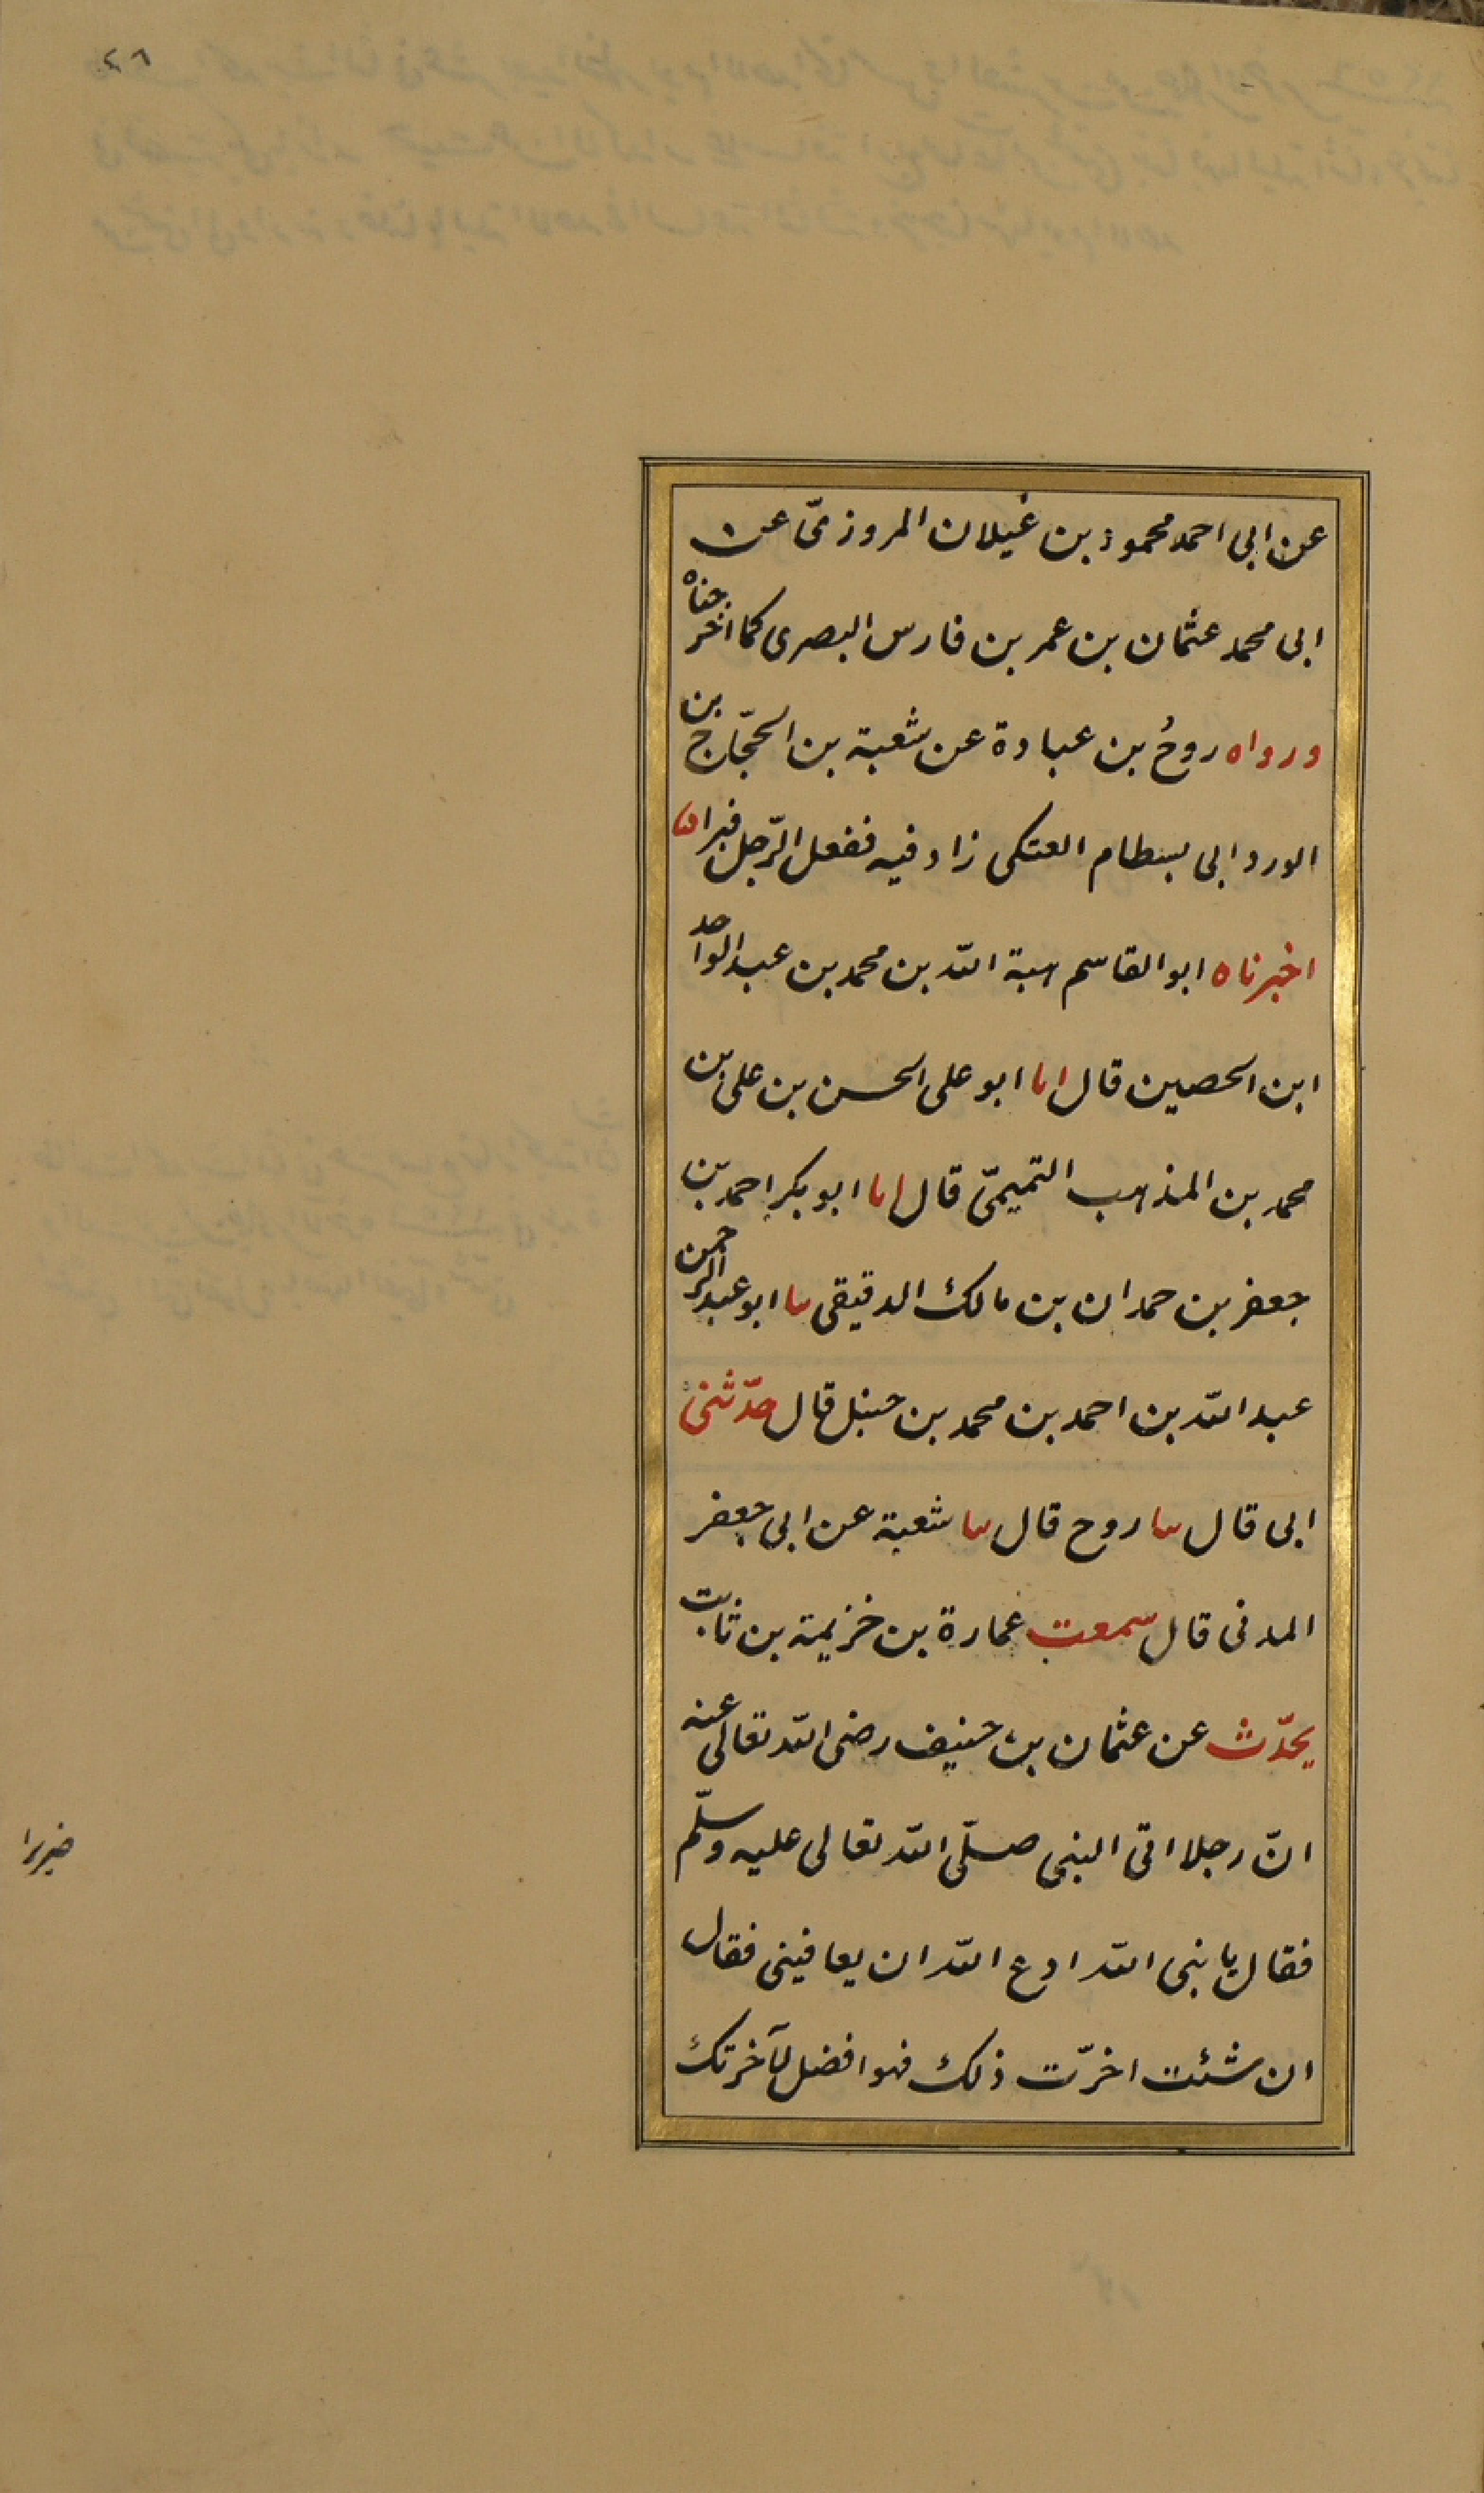 ٤٦
عن ابى احمد محمود بن غيلان المروزىّ عن
ابى محمد عثمان بن عمر بن فارس البصرى كما اخرجناه
ورواه روحُ بن عبادة عن شعبة بن الحجّاج بن
الورد ابى بسطام العتكى زاد فيه ففعل الرّجل فبرا انا
اخبرناه ابو القاسم هبة الله بن محمد بن عبد الواحد
ابن الحصين قال انا ابو على الحسن بن على بن
محمد بن المذهب التميمىّ قال انا ابو بكر احمد بن
جعفر بن حمدان بن مالك الدقيقى ثنا ابو عبد الرحمن
عبد الله بن احمد بن محمد بن حنبل قال حدّثنى
ابى قال ثنا روح قال ثنا شعبة عن ابى جعفر
المدنى قال سمعت عمارة بن خزيمة بن ثابت
يحدّث عن عثمان بن حنيف رضى الله تعالى عنه
انّ رجلا اتى النبى صلّى الله تعالى عليه وسلّم
ضريرا
فقال يا نبى الله ادع الله ان يعافينى فقال
ان شئت اخرّت ذلك فهو افضل لآخرتك